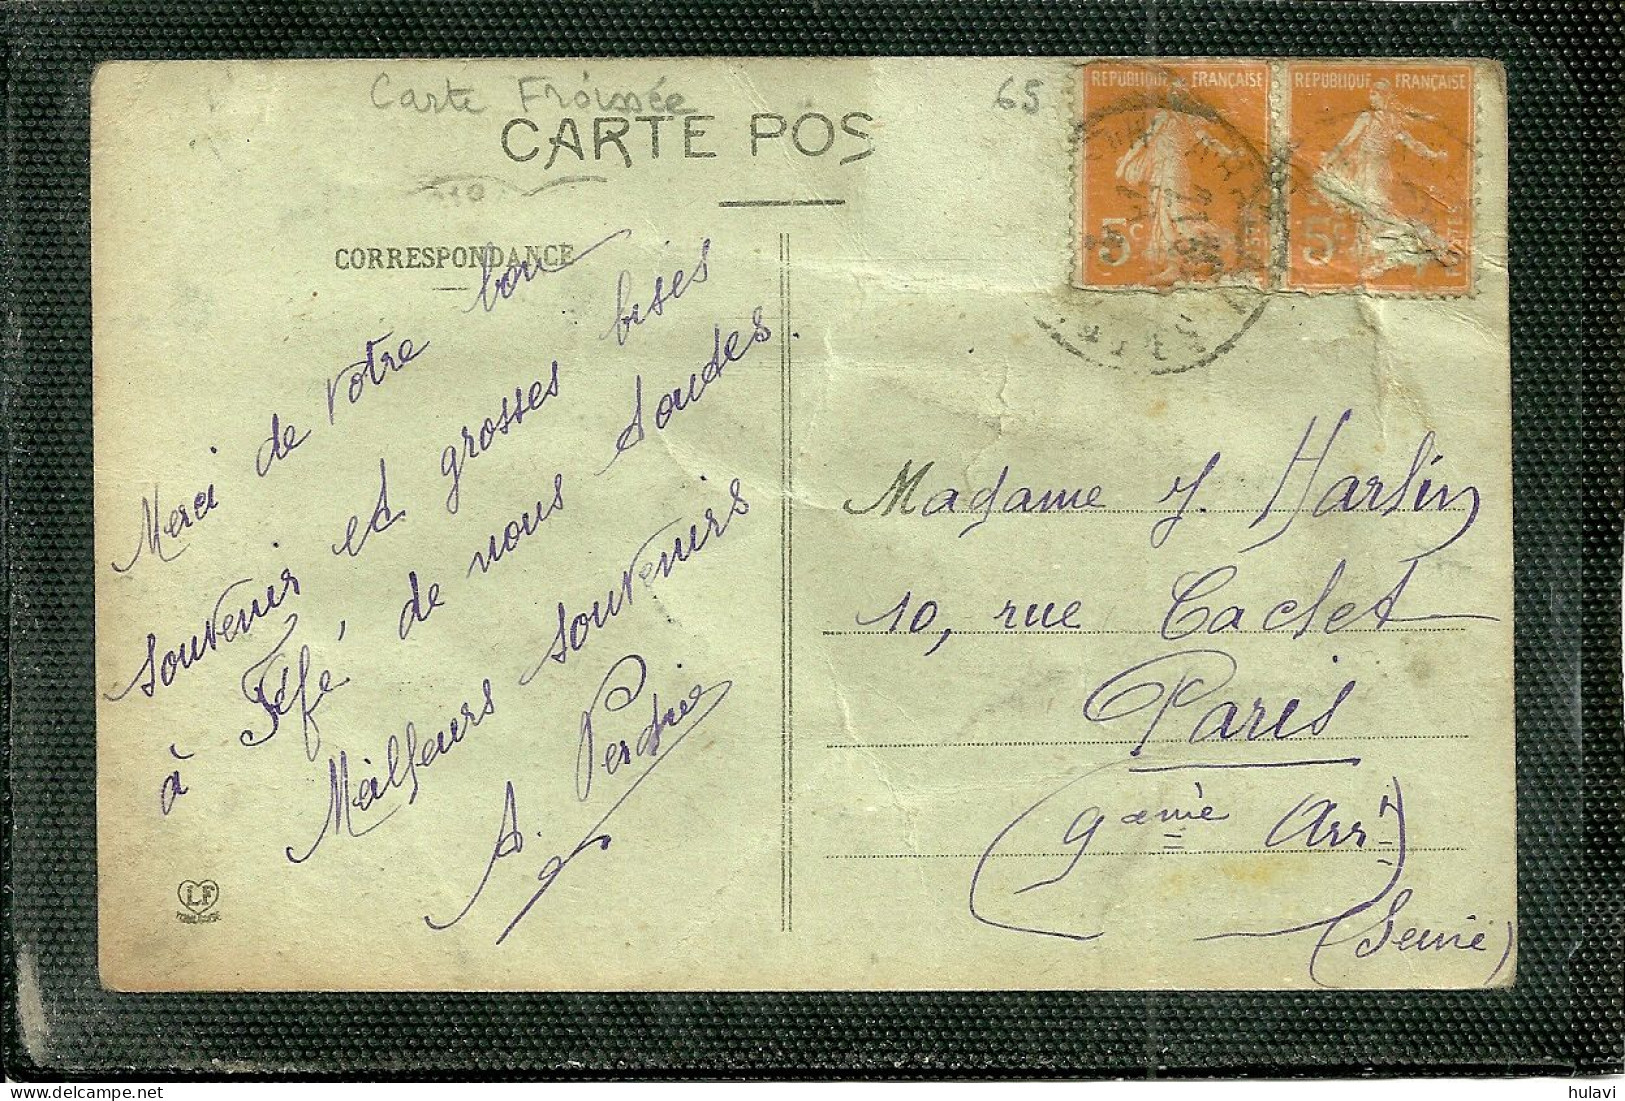 Carte Froissée
65
CARTE POS
REPUBLIQUE FRANÇAISE
5c
REPUBLIQUE FRANÇAISE
5c
CORRESPONDANCE
Merci de votre bon
souvenir et grosses bises
à Fifé, de nous toutes.
Meilleurs souvenirs
A. Perdrie
LF
Madame J. Harlin
10, rue Cadet
Paris
(9ème Arrt)
(Seine)
hulavi